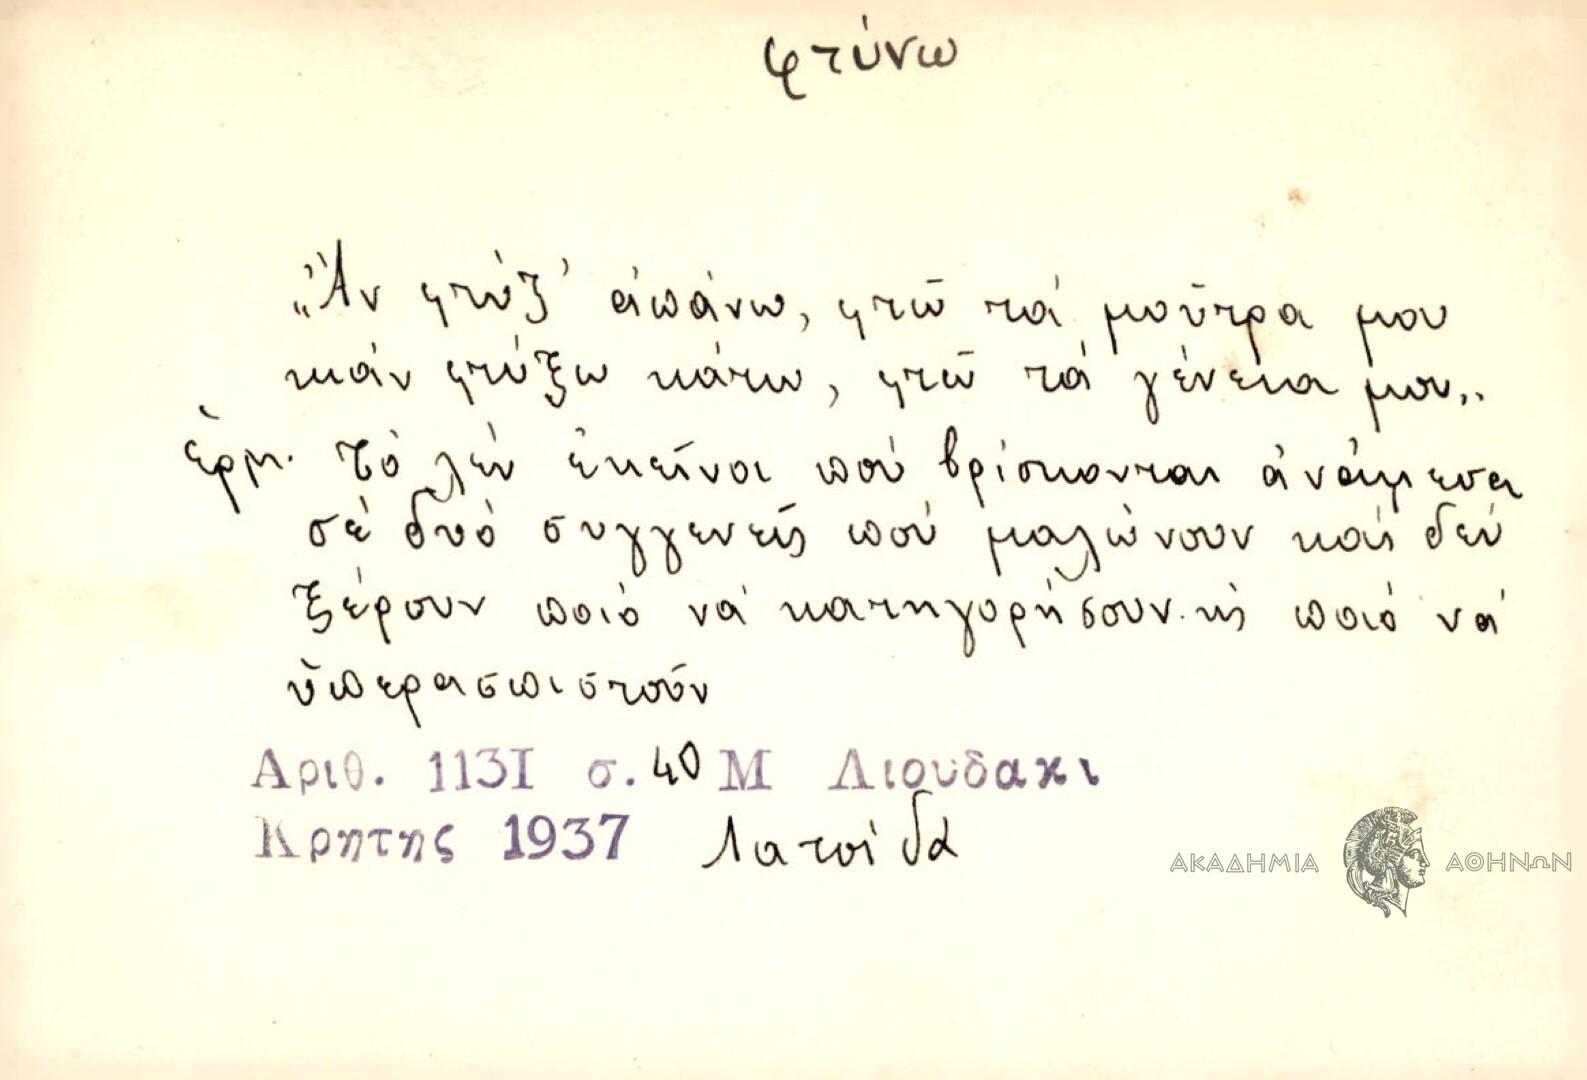 φτύνω
„Ἄν φτύξ' ἀπάνω, φτῶ τά μοῦτρα μου
κιάν φτύξω κάτω, φτῶ τά γένεια μου„
ἑρμ. Τό λέν ἐκεῖνοι πού βρίσκονται ἀνάμεσα
σέ δυό συγγενεῖς πού μαλώνουν καί δέν
ξέρουν ποιό νά κατηγορήσουν κι ποιό νά
ὑπερασπιστοῦν
Αριθ. 1131 σ. 40 Μ Λιουδακι
Κρητης 1937 Λατσίδα
ΑΚΑΔΗΜΙΑ ΑΘΗΝΩΝ